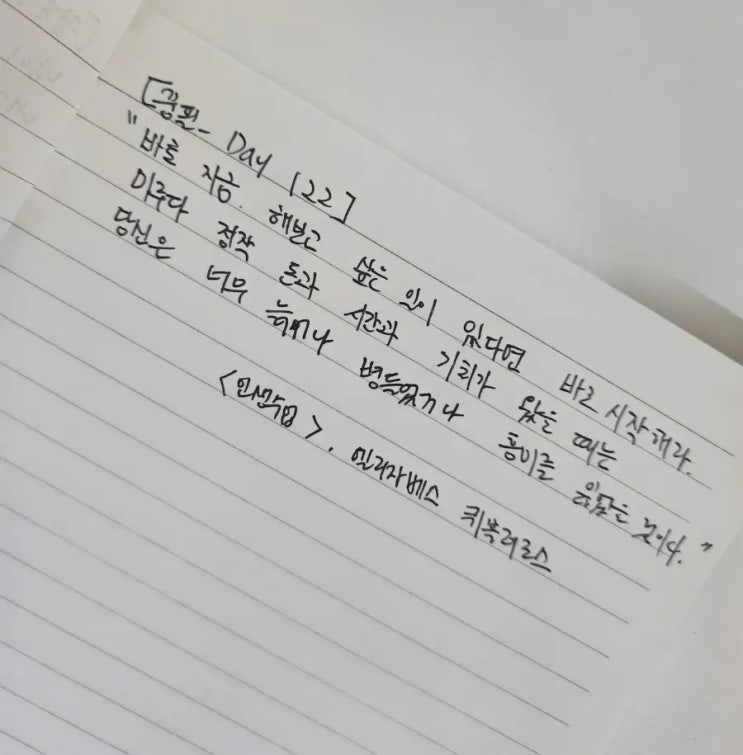 [콩필- Day 122]
"바로 지금. 해보고 싶은 일이 있다면 바로 시작해라.
미루다 정작 돈과 시간과 기회가 왔을 때는
당신은 너무 늙거나 병들었거나 흥미를 잃었을 것이다."
<인생수업>, 엘리자베스 퀴블러로스